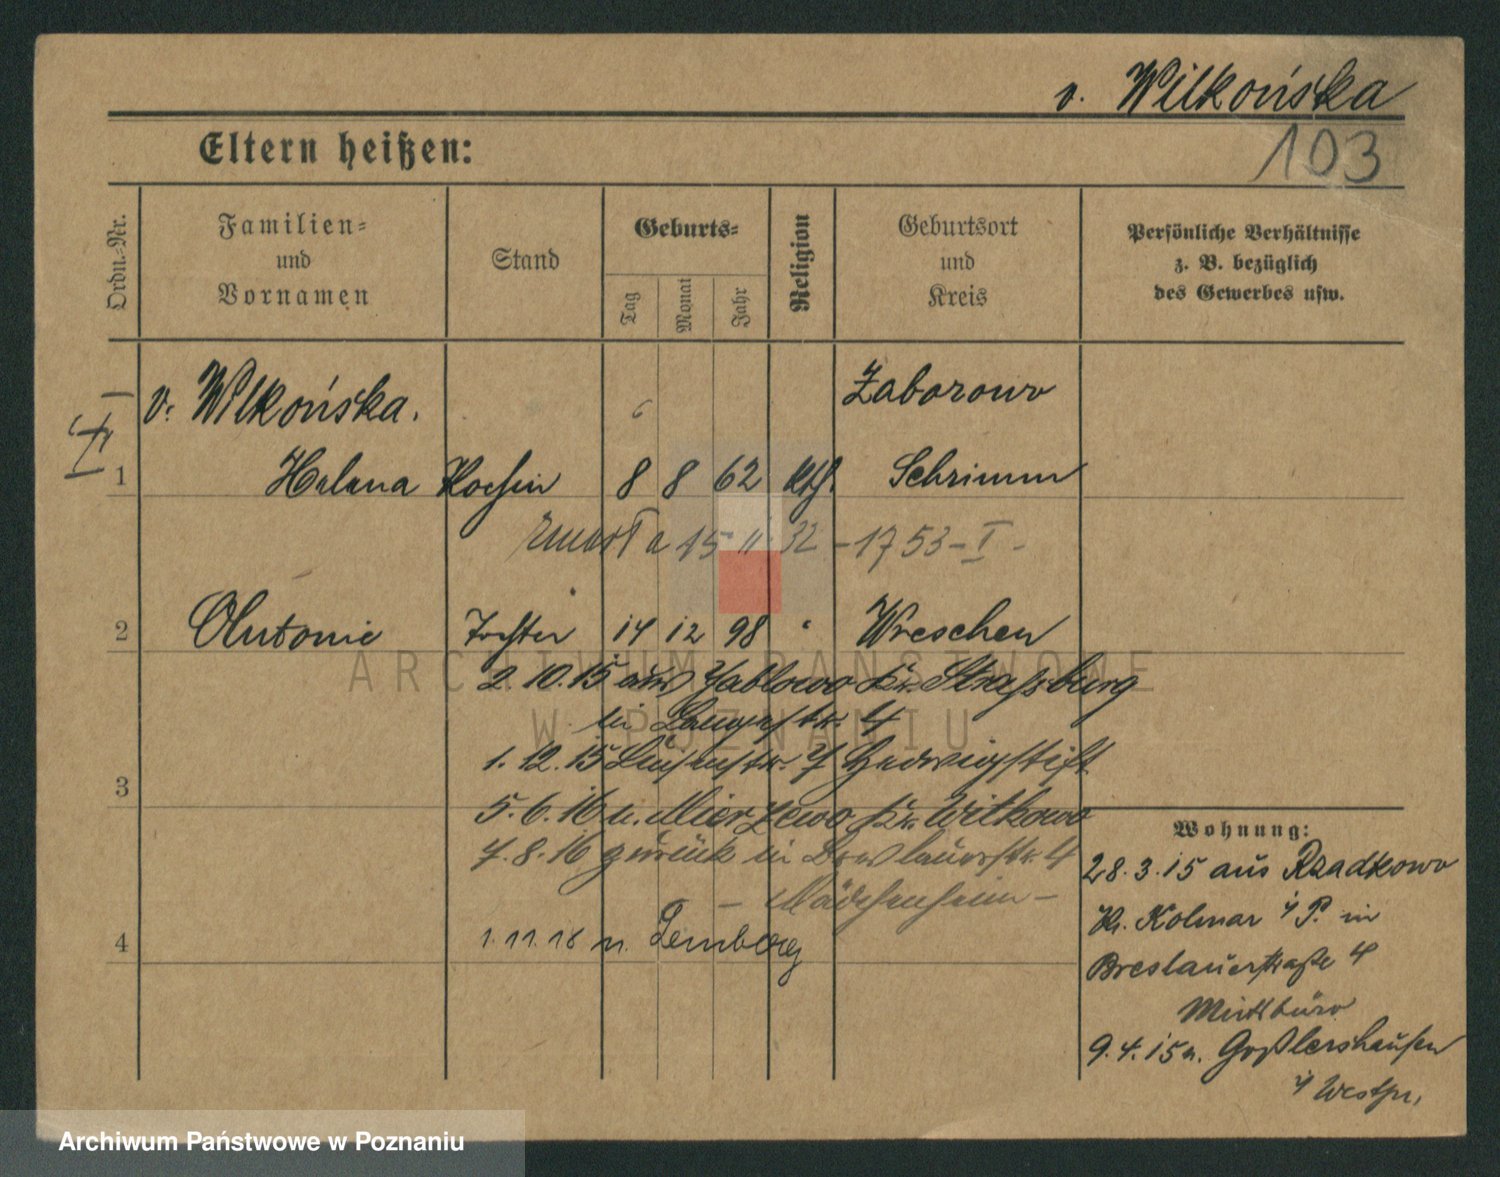 v. Wilkońska
103
Eltern heißen:
Ordn.-Nr.
Familien-
und
Vornamen
Stand
Geburts-
Tag
Monat
Jahr
Religion
Geburtsort
und
Kreis
Persönliche Verhältnisse
z. B. bezüglich
des Gewerbes usw.
v. Wilkońska.
Zaborowo
I
1 Helena Köchin 8 8 62 kth. Schrimm
zmarła 15 II 32 - 1753 - I -
2 Antonie Tochter 14 12 98 " Wreschen
ARCHIWUM PAŃSTWOWE
W POZNANIU
2.10.15 aus Jablowo Kr. Straßburg
in Langestr. 4
1.12.15 Luisenstr. 7 Hedwigstift
3
5.6.16 n. Mierzewo Kr. Witkowo
7.8.16 zurück in Breslauerstr. 4
- Mädchenheim -
4 1.11.18 n. Lemberg
Wohnung:
28.3.15 aus Rzadkowo
Kr. Kolmar i/P. in
Breslauerstraße 4
Mietsbüro
9.4.15 n. Goßlershausen
i/Westpr.
Archiwum Państwowe w Poznaniu